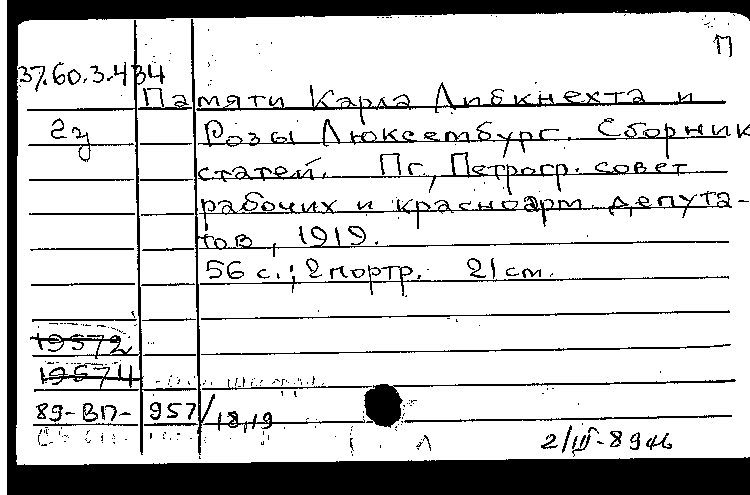 П
37.60.3.434
Памяти Карла Либкнехта и
2 э Розы Люксембург. Сборник
статей. Пг., Петрогр. совет
рабочих и красноарм. депута-
тов, 1919.
56 с.; 2 портр. 21 cm.
19572
19574
89-ВП- 957/18,19
2/III-89